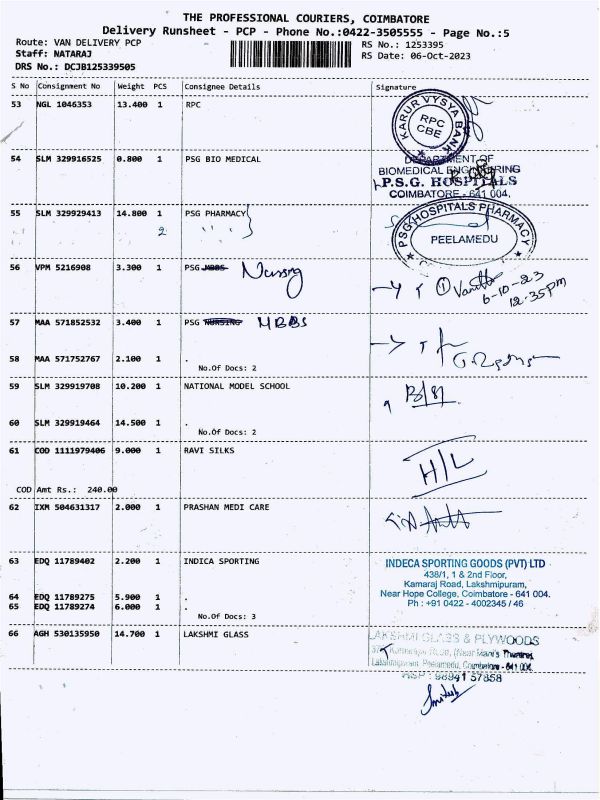 THE PROFESSIONAL COURIERS, COIMBATORE
Delivery Runsheet - PCP - Phone No.:0422-3505555 - Page No.:5
Route: VAN DELIVERY PCP RS No.: 1253395
Staff: NATARAJ RS Date: 06-Oct-2023
DRS No.: DCJB125339505
S No Consignment No Weight PCS Consignee Details Signature
53 NGL 1046353 13.400 1 RPC
KARUR VYSYA BANK
RPC
CBE
54 SLM 329916525 0.800 1 PSG BIO MEDICAL
DEPARTMENT OF
BIOMEDICAL ENGINEERING
P.S.G. HOSPITALS
COIMBATORE - 641 004.
55 SLM 329929413 14.800 1 PSG PHARMACY
2
PSG HOSPITALS PHARMACY
PEELAMEDU
56 VPM 5216908 3.300 1 PSG MBBS Nursing
6-10-23
12.35pm
57 MAA 571852532 3.400 1 PSG NURSING MBBS
58 MAA 571752767 2.100 1 .
No.Of Docs: 2
59 SLM 329919708 10.200 1 NATIONAL MODEL SCHOOL
60 SLM 329919464 14.500 1 .
No.Of Docs: 2
61 COD 1111979406 9.000 1 RAVI SILKS
H/L
COD Amt Rs.: 240.00
62 IXM 504631317 2.000 1 PRASHAN MEDI CARE
63 EDQ 11789402 2.200 1 INDICA SPORTING
INDECA SPORTING GOODS (PVT) LTD
438/1, 1 & 2nd Floor,
Kamaraj Road, Lakshmipuram,
Near Hope College, Coimbatore - 641 004.
Ph : +91 0422 - 4002345 / 46
64 EDQ 11789275 5.900 1 .
65 EDQ 11789274 6.000 1 .
No.Of Docs: 3
66 AGH 530135950 14.700 1 LAKSHMI GLASS
LAKSHMI GLASS & PLYWOODS
Road, (Near Mani's Theatre)
Lakshmipuram, Peelamedu, Coimbatore - 641 004.
57858